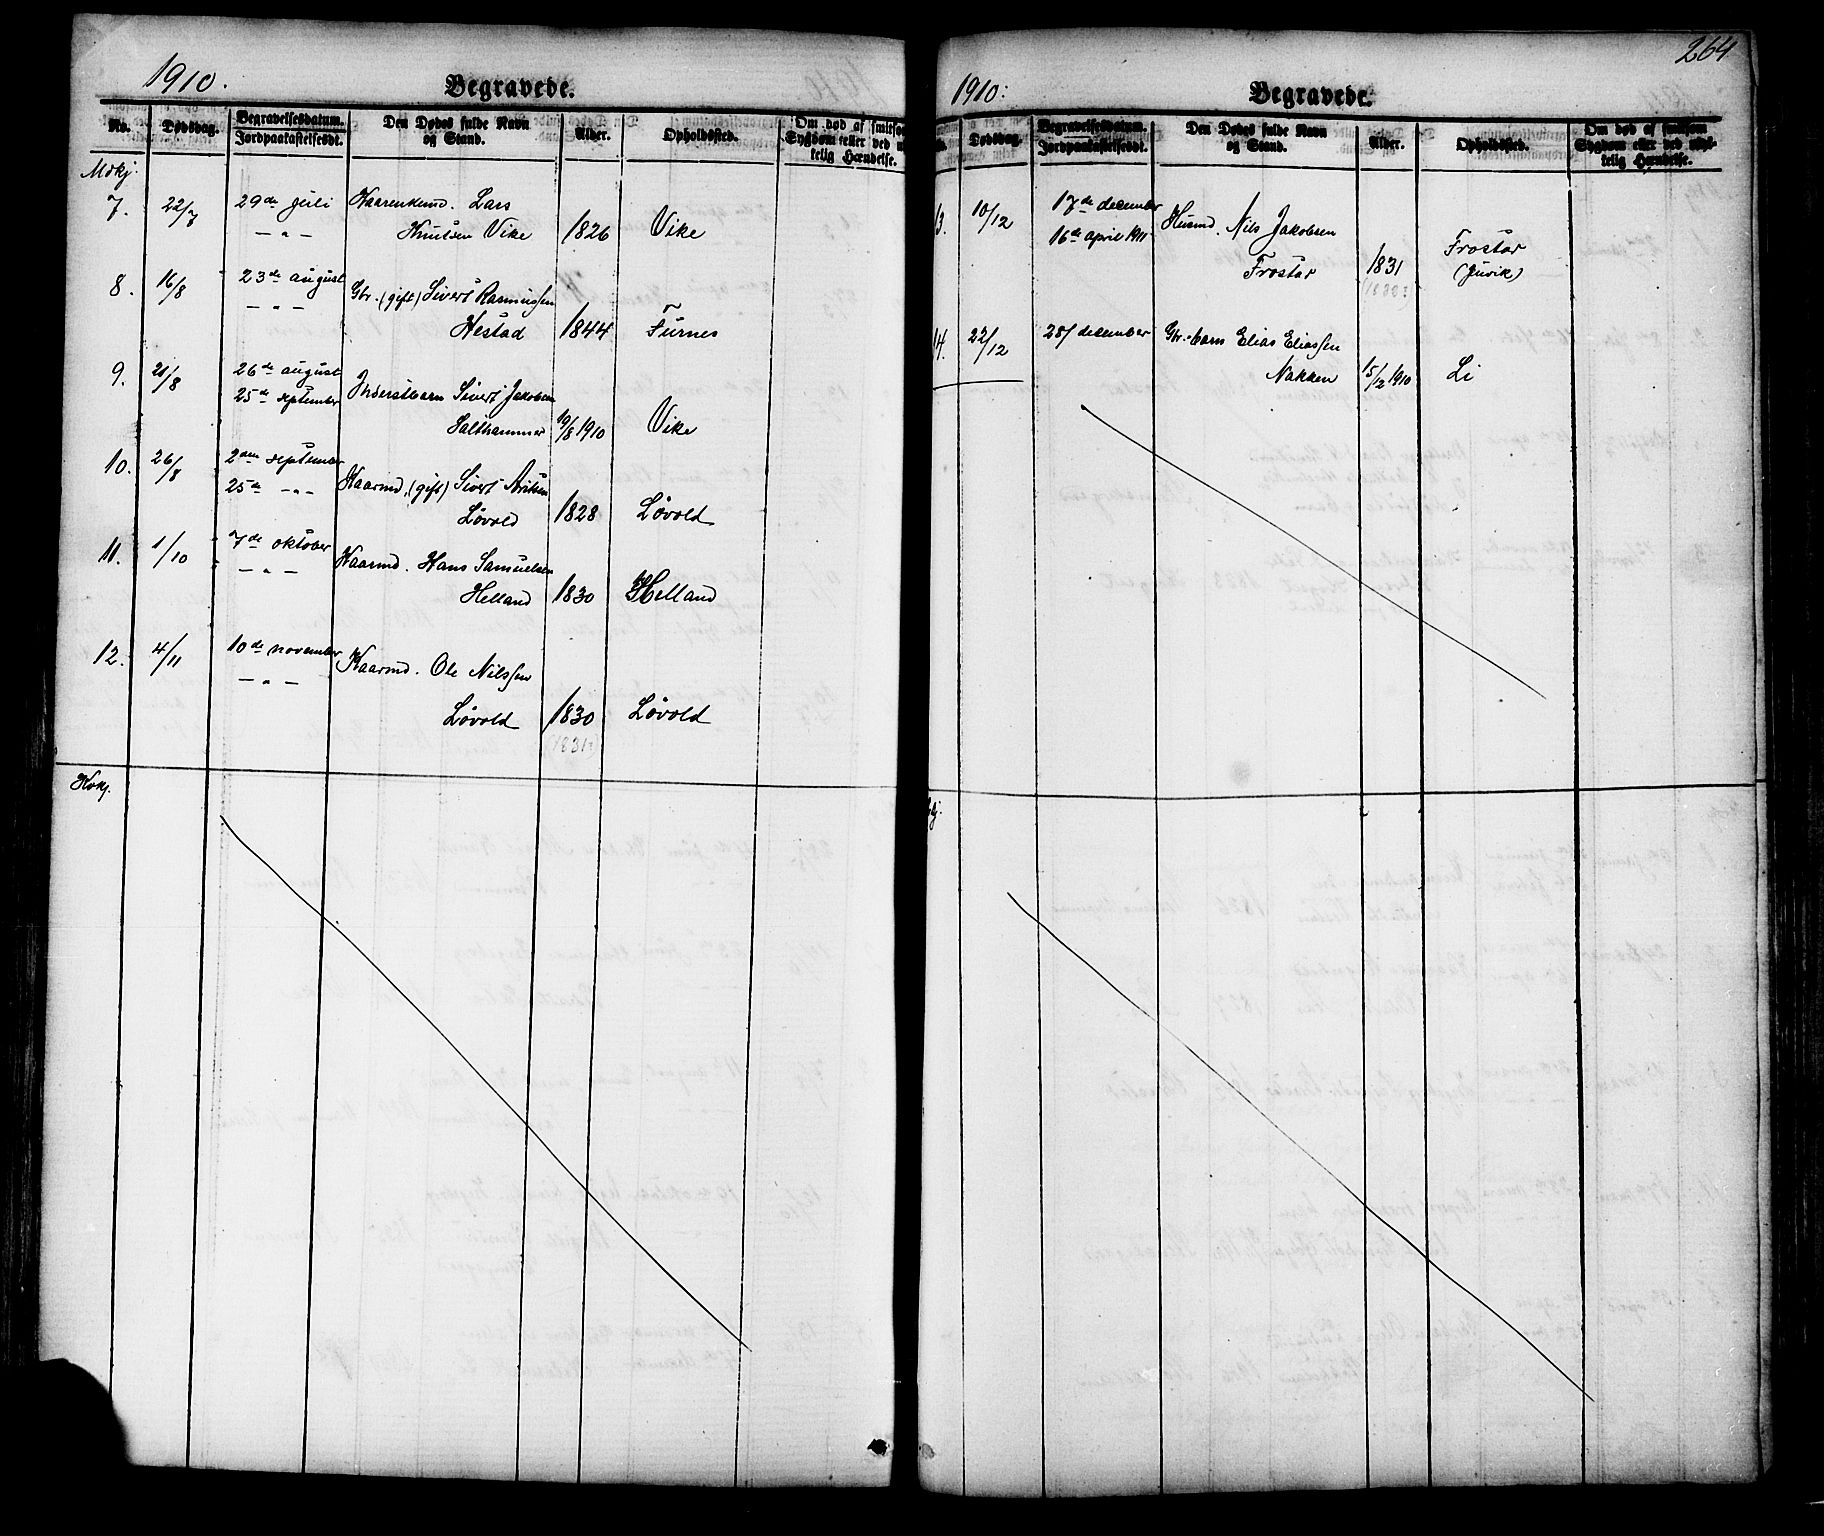 1910.
Begravede.
No.
Dødsdag.
Begravelsesdatum.
Jordpaakastelsesdt.
Den Dødes fulde Navn
og Stand.
Alder.
Opholdssted.
Om død af smitsom
Sygdom eller ved u
kelig Hændelse.
Mskj.
7. 22/7 29de juli Kaarenkemd. Lars
– " – Knutsen Vike 1826 Vike
8. 16/8 23de august Gbr. (gift) Sivert Rasmussen
– " – Hestad 1844 Furnes
9. 21/8 26de august
25de september Inderstbarn Sivert Jakobsen
Salthammer 19/8 1910 Vike
10. 26/8 2den september Kaarmd. (gift) Sivert
25de – " – Løvold 1828 Løvold
11. 1/10 7de oktober Kaarmd. Hans Samuelsen
– " – Helland 1830 Helland
12. 4/11 10de november Kaarmd. Ole Nilssen
– " – Løvold 1830 Løvold
(1831?)
Kvkj.
264
1910:
Begravede.
Dødsdag.
Begravelsesdatum.
Jordpaakastelsesdt.
Den Dødes fulde Navn
og Stand.
Alder.
Opholdssted.
Om død af smitsom
Sygdom eller ved ulyk-
kelig Hændelse.
3. 10/12 17de december Husmd. Nils Jakobsen
16de april 1911 Frostar 1831 Frostar
(Juvik)
14. 22/12 28/ december Gbr.-barn Elias Eliassen
Nakken 15/12 1910 Li
kj.